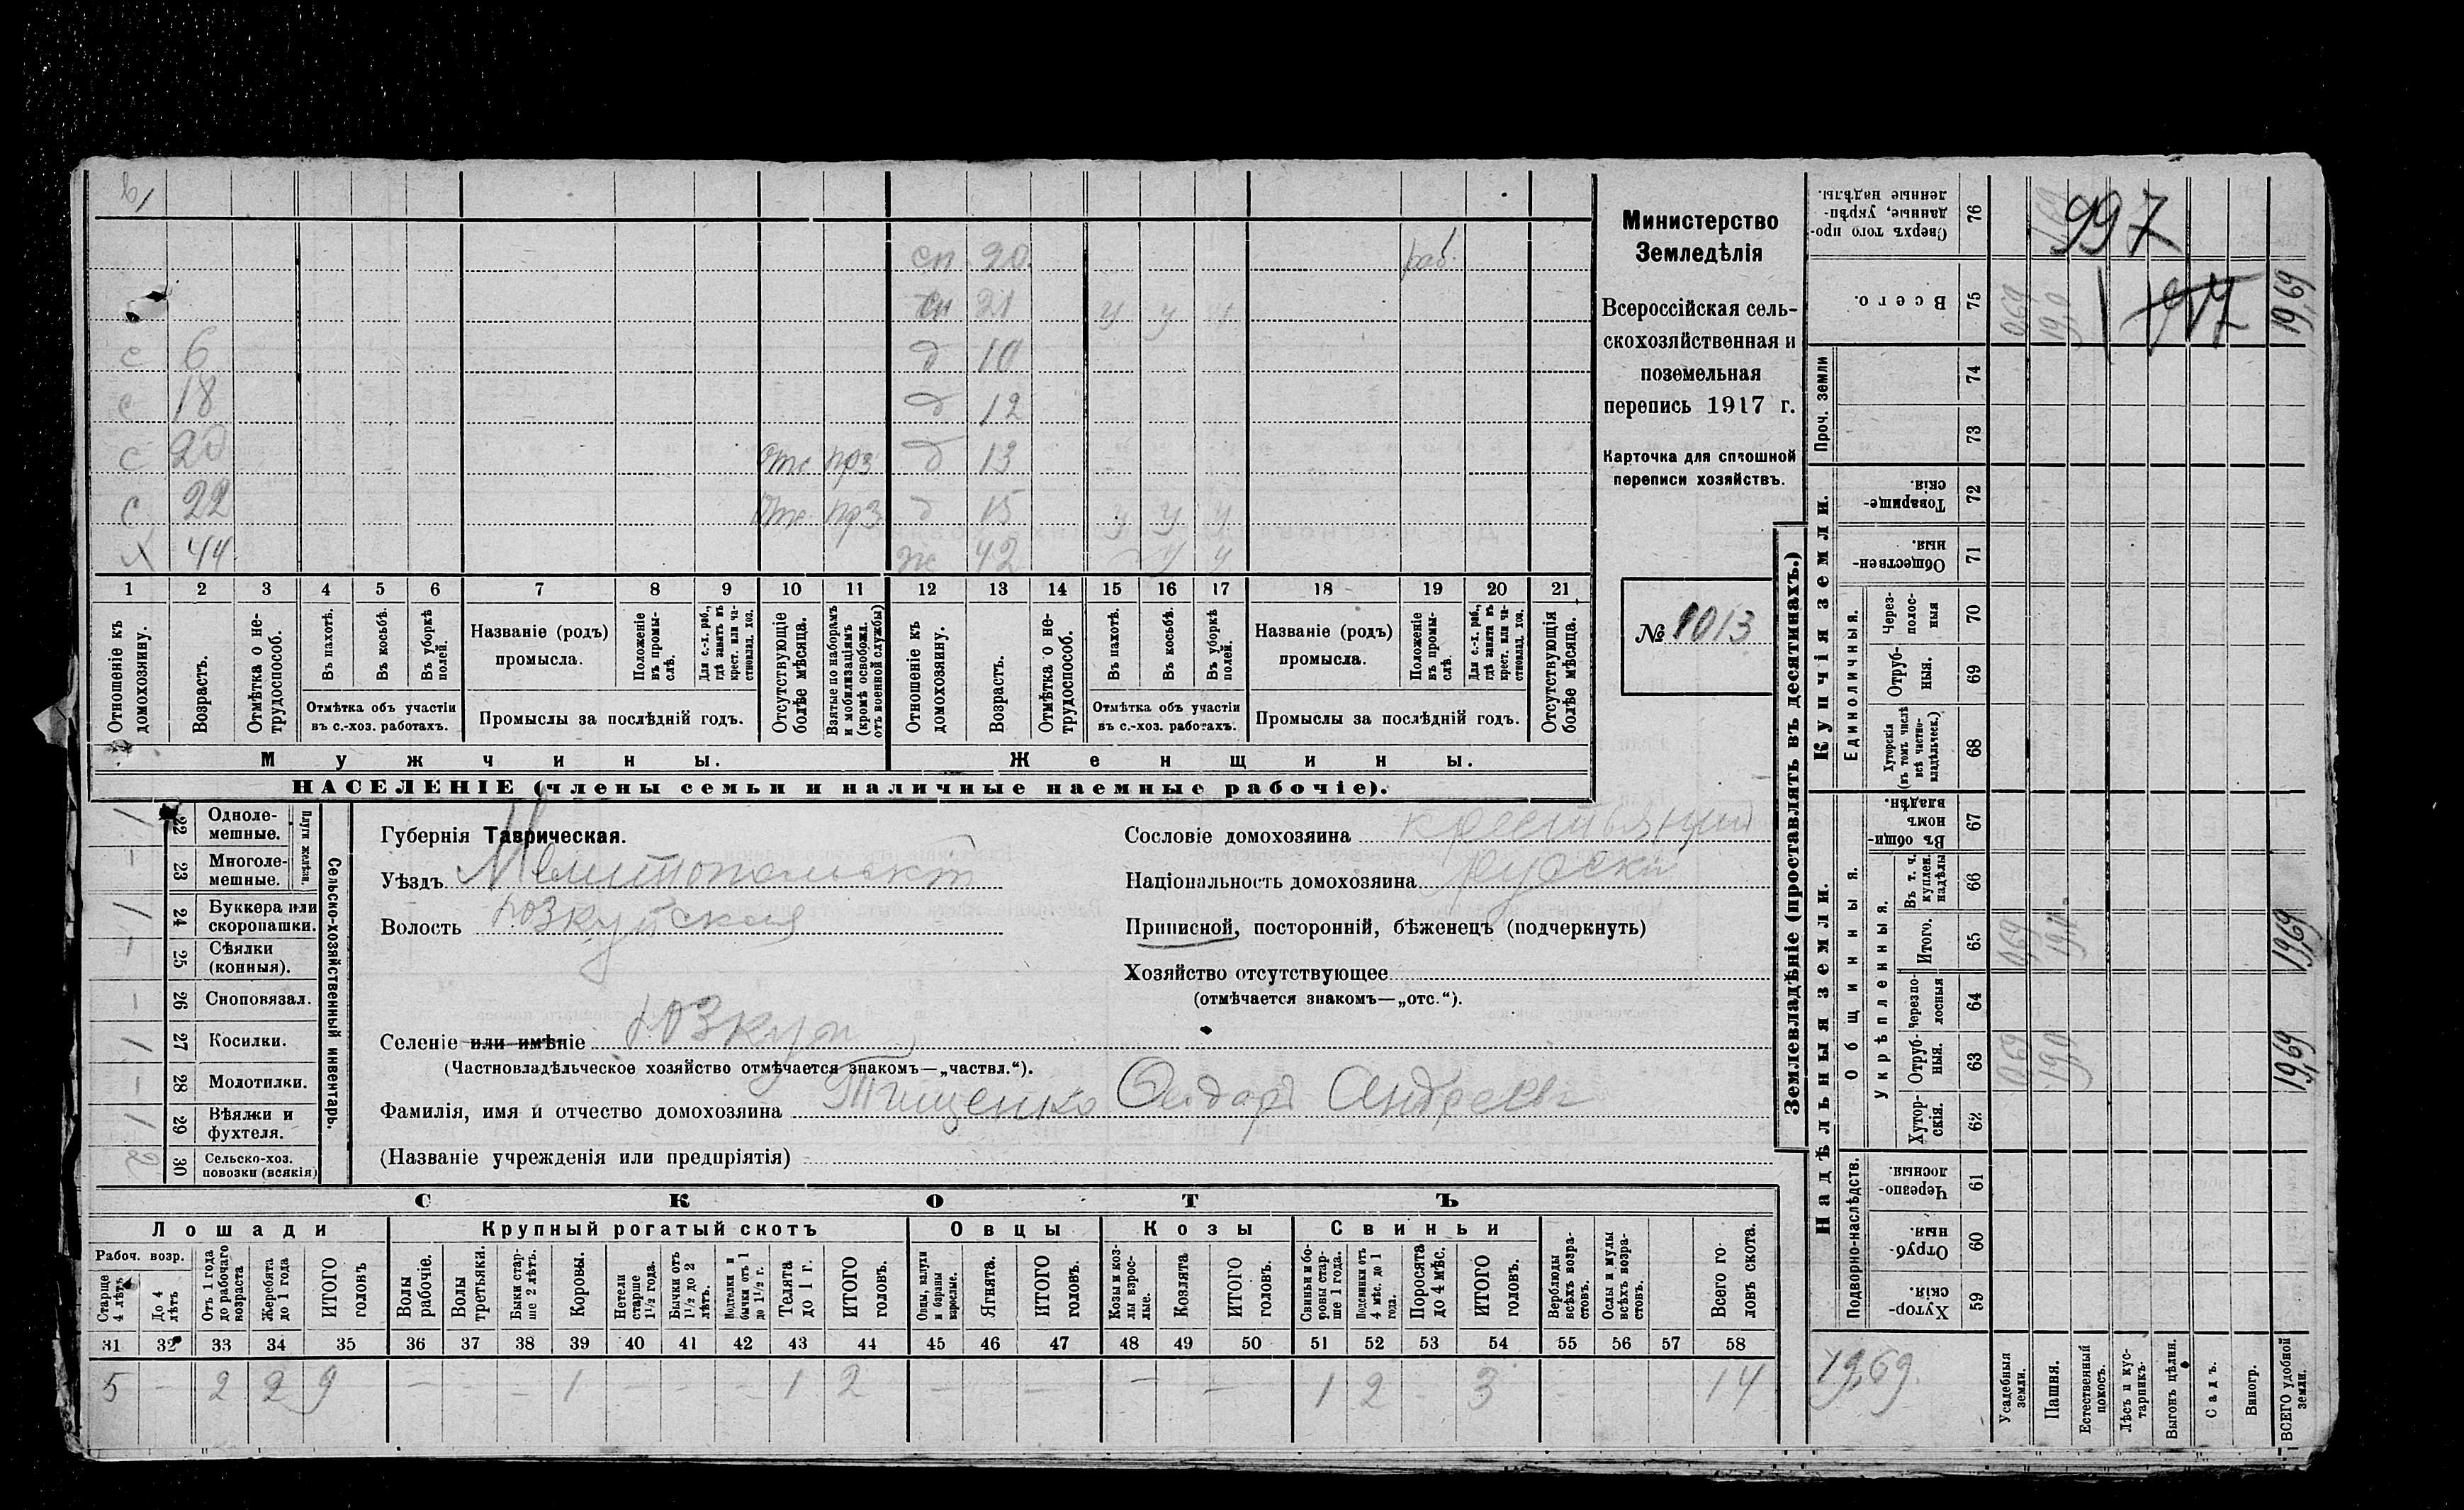 в/
сн 20 раб.
сн 21 у у у
с 6 д 10
с 18 д 12
с 20 отс прз д 13
с 22 отс прз д 15 у у у
х 44 ж 42 у у
1 2 3 4 5 6 7 8 9 10 11 12 13 14 15 16 17 18 19 20 21
Отношеніе къ домохозяину.
Возрастъ.
Отмѣтка о нетрудоспособ.
Въ пахотѣ.
Въ косьбѣ.
Въ уборкѣ полей.
Отмѣтка объ участіи въ с.-хоз. работахъ.
Названіе (родъ) промысла.
Положеніе въ промыслѣ.
Для с.-х. раб., гдѣ занятъ въ крест. или частновлад. хоз.
Промыслы за послѣдній годъ.
Отсутствующіе болѣе мѣсяца.
Взятые по наборамъ и мобилизаціямъ (кромѣ освобожд. отъ военной службы)
Отношеніе къ домохозяину.
Возрастъ.
Отмѣтка о нетрудоспособ.
Въ пахотѣ.
Въ косьбѣ.
Въ уборкѣ полей.
Отмѣтка объ участіи въ с.-хоз. работахъ.
Названіе (родъ) промысла.
Положеніе въ промыслѣ.
Для с.-х. раб., гдѣ занята въ крест. или частновлад. хоз.
Промыслы за послѣдній годъ.
Отсутствующія болѣе мѣсяца.
Мужчины. Женщины.
НАСЕЛЕНІЕ (члены семьи и наличные наемные рабочіе).
Министерство
Земледѣлія
Всероссійская сель-
скохозяйственная и
поземельная
перепись 1917 г.
Карточка для сплошной
переписи хозяйствъ.
№ 1013
Сельско-хозяйственный инвентарь.
Плуги желѣзн.
1 22 Однолемешные.
— 23 Многолемешные.
1 24 Буккера или скоропашки.
— 25 Сѣялки (конныя).
— 26 Сноповязал.
1 27 Косилки.
— 28 Молотилки.
1 29 Вѣялки и фухтеля.
2 30 Сельско-хоз. повозки (всякія)
Губернія Таврическая.
Уѣздъ Мелитопольскій
Волость Юзкуйская
Селеніе или имѣніе Юзкуи
(Частновладѣльческое хозяйство отмѣчается знакомъ—„частвл.“).
Фамилія, имя и отчество домохозяина Тищенко Сидоръ Андреевъ
(Названіе учрежденія или предпріятія)
Сословіе домохозяина крестьянин
Національность домохозяина русски
Приписной, посторонній, бѣженецъ (подчеркнуть)
Хозяйство отсутствующее
(отмѣчается знакомъ—„отс.“).
СКОТЪ
Лошади Крупный рогатый скотъ Овцы Козы Свиньи
Рабоч. возр.
Старше 4 лѣтъ
До 4 лѣтъ
Отъ 1 года до рабочаго возраста
Жеребята до 1 года
ИТОГО головъ
Волы рабочіе.
Волы третьяки.
Быки старше 2 лѣтъ.
Коровы.
Нетели старше 1½ года.
Бычки отъ 1½ до 2 лѣтъ.
Подтелки и бычки отъ 1 до 1½ г.
Телята до 1 г.
ИТОГО головъ.
Овцы, валухи и бараны взрослые.
Ягнята.
ИТОГО головъ.
Козы и козлы взрослые.
Козлята
ИТОГО головъ.
Свиньи и боровы старше 1 года.
Подсвинки отъ 4 мѣс. до 1 года.
Поросята до 4 мѣс.
ИТОГО головъ.
Верблюды всѣхъ возрастовъ.
Ослы и мулы всѣхъ возрастовъ.
Всего головъ скота.
31 32 33 34 35 36 37 38 39 40 41 42 43 44 45 46 47 48 49 50 51 52 53 54 55 56 57 58
5 — 2 2 9 — — — 1 — — — 1 2 — — — — — 1 2 — 3 — 14
Землевладѣніе (проставлять въ десятинахъ.)
Надѣльныя земли.
Купчія земли.
Проч. земли
Подворно-наслѣдств.
Общинныя.
Укрѣпленныя.
Единоличныя.
76 Сверхъ того проданные, укрѣпленные надѣлы.
997
75 Всего. 0,69 19,0 1917 19,69
74
73
72 Товарищескія.
71 Общественныя.
70 Черезполосныя
69 Отрубныя.
68 Хуторскія (въ томъ числѣ всѣ частновладѣльческ.)
67 Въ общинномъ владѣн.
66 Въ т. ч. куплен. надѣлы
65 Итого. 0,69 19,0 19,69
64 Черезполосныя
63 Отрубныя. 0,69 19,0 19,69
62 Хуторскія.
61 Черезполосныя.
60 Отрубныя.
59 Хуторскія.
19,69.
Усадебныя земли.
Пашня.
Естественный покосъ.
Лѣсъ и кустарникъ.
Выгонъ цѣлин.
Садъ.
Виногр.
ВСЕГО удобной земли.